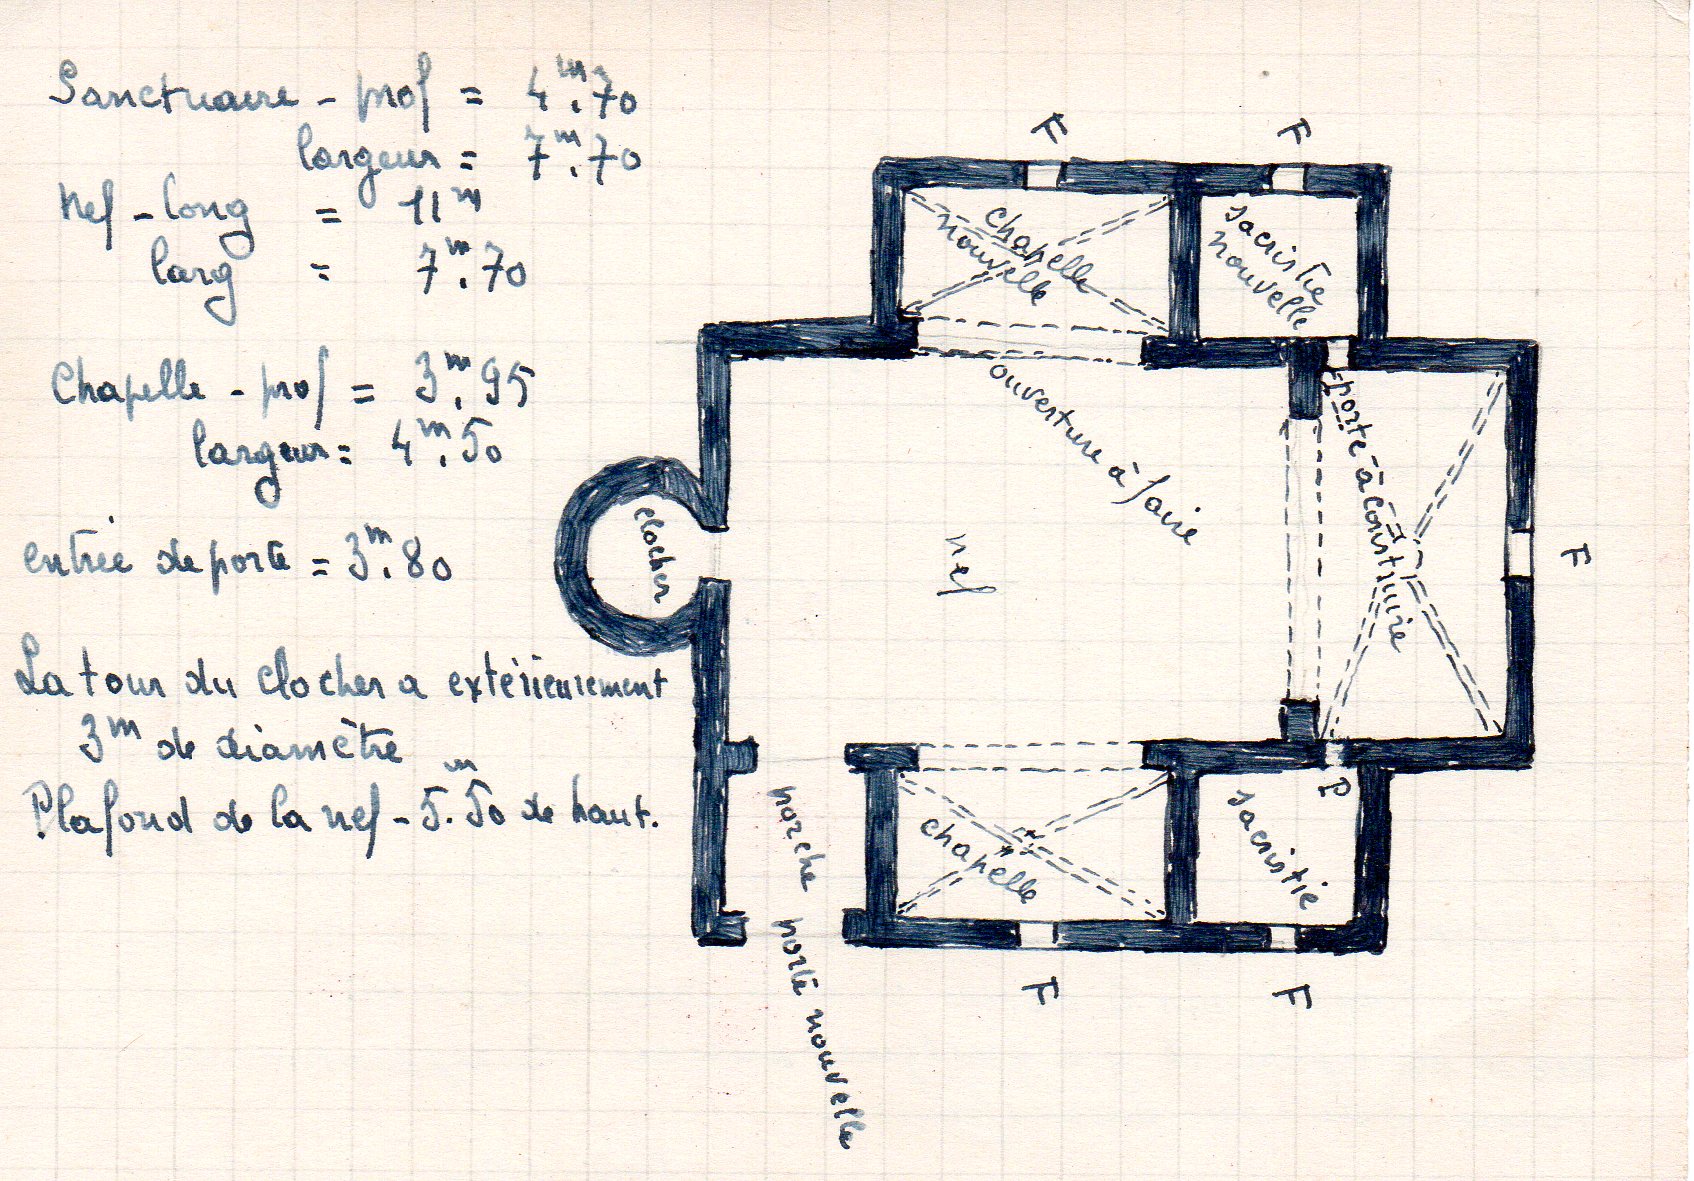 Sanctuaire - prof = 4m.70
largeur = 7m.70
Nef - long = 11m
larg = 7m.70
Chapelle - prof = 3m.95
largeur = 4m.50
entrée de porte = 3m.80
La tour du clocher a extérieurement
3m de diamètre
Plafond de la nef - 5.m50 de haut.
F
F
chapelle
nouvelle
sacristie
nouvelle
ouverture à faire
porte à construire
clocher
nef
F
P
porche
chapelle
sacristie
porte nouvelle
F
F